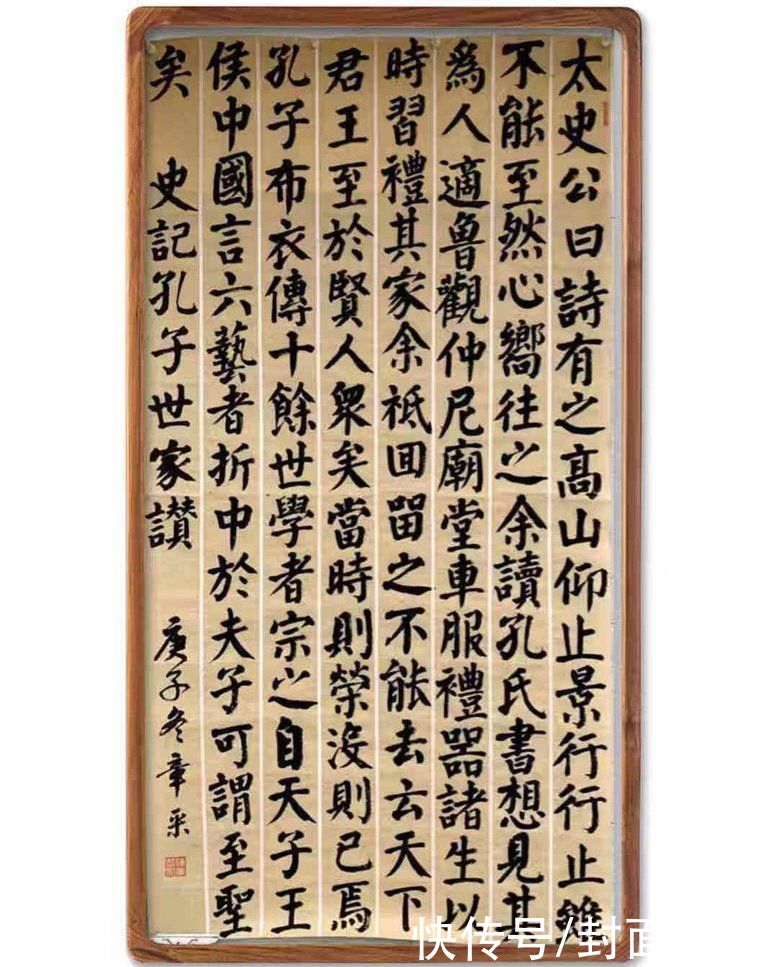 太史公曰詩有之高山仰止景行行止雖
不能至然心嚮往之余讀孔氏書想見其
為人適魯觀仲尼廟堂車服禮器諸生以
時習禮其家余祗回留之不能去云天下
君王至於賢人衆矣當時則榮沒則已焉
孔子布衣傳十餘世學者宗之自天子王
侯中國言六藝者折中於夫子可謂至聖
矣 史記孔子世家讃
庚子冬章采
快传号/封面